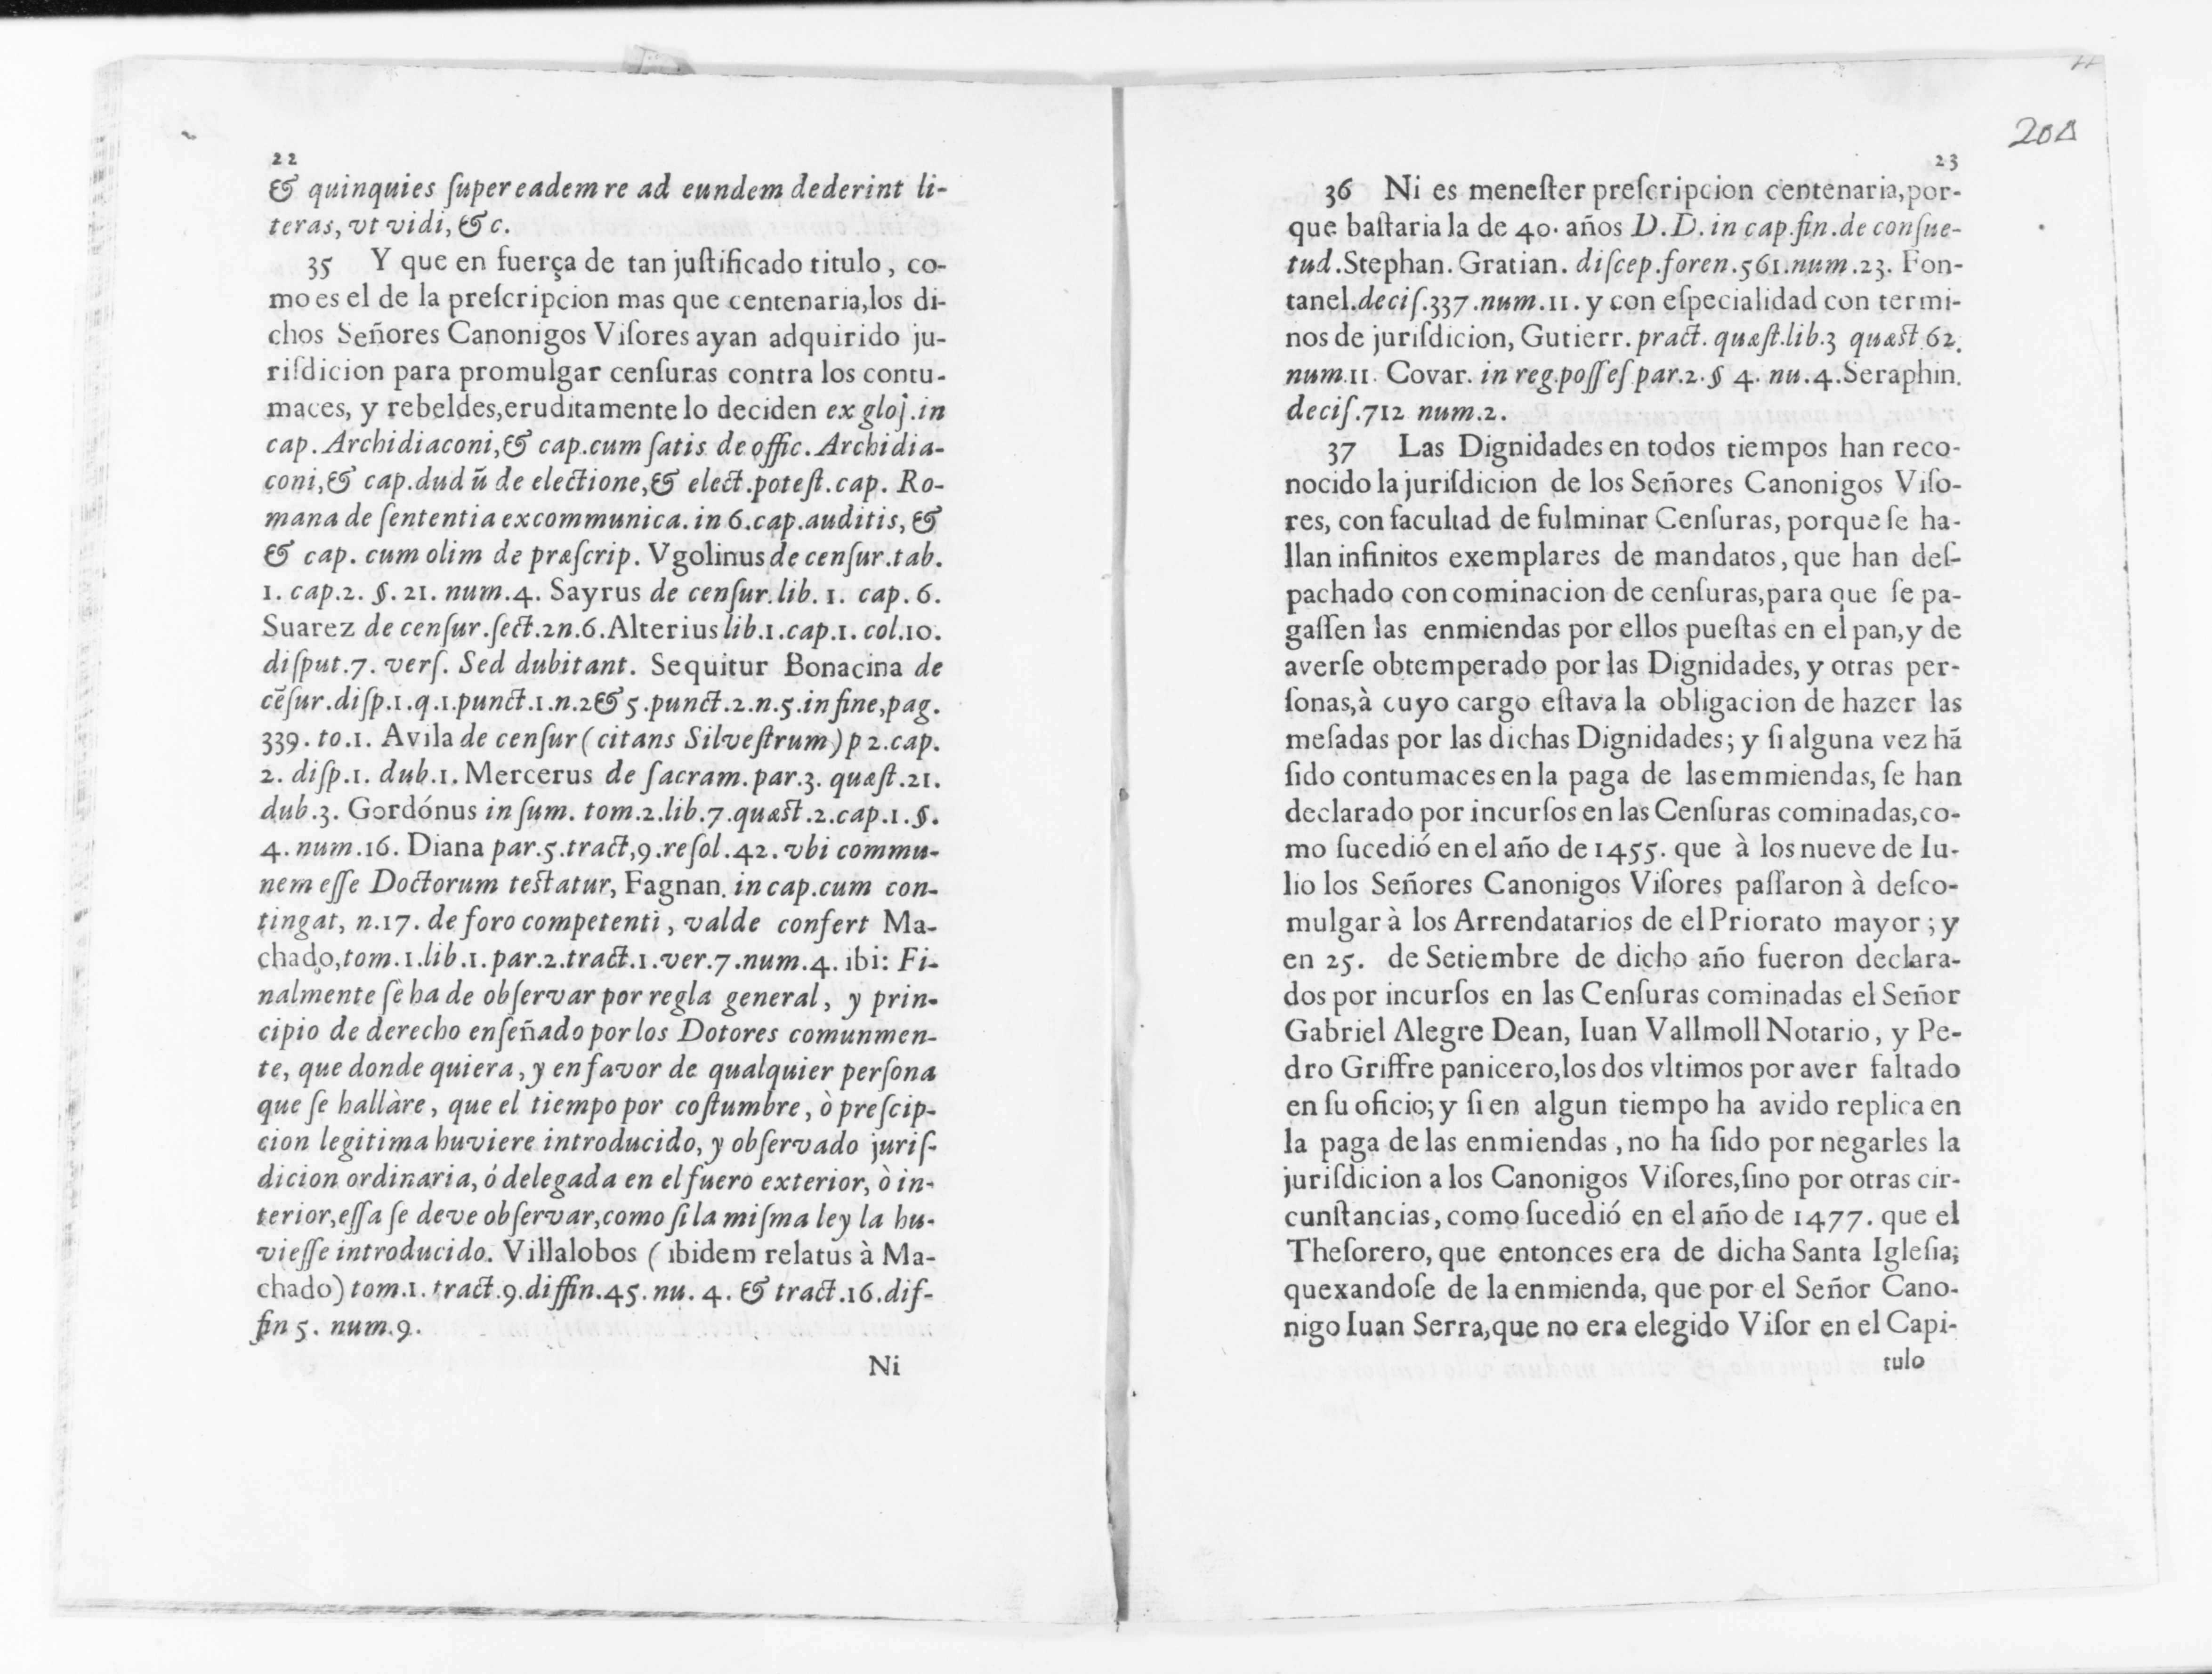 22
& quinquies ſuper eadem re ad eundem dederint li-
teras, vt vidi, &c.
35 Y que en fuerça de tan juſtificado titulo, co-
mo es el de la preſcripcion mas que centenaria,los di-
chos Señores Canonigos Viſores ayan adquirido ju-
riſdicion para promulgar cenſuras contra los contu-
maces, y rebeldes,eruditamente lo deciden ex gloſ.in
cap. Archidiaconi,& cap.cum ſatis de offic. Archidia-
coni,& cap.dudũ de electione,& elect.poteſt.cap. Ro-
mana de ſententia excommunica. in 6.cap.auditis, &
& cap. cum olim de præſcrip. Vgolinus de cenſur.tab.
1. cap.2. §. 21. num.4. Sayrus de cenſur.lib. 1. cap. 6.
Suarez de cenſur.ſect.2n.6.Alterius lib.1.cap.1. col.10.
diſput.7. verſ. Sed dubitant. Sequitur Bonacina de
cẽſur.diſp.1.q.1.punct.1.n.2&5.punct.2.n.5.in fine,pag.
339. to.1. Avila de cenſur (citans Silveſtrum) p 2.cap.
2. diſp.1. dub.1. Mercerus de ſacram.par.3. quæſt.21.
dub.3. Gordónus in ſum. tom.2.lib.7.quæſt.2.cap.1.§.
4. num.16. Diana par.5.tract,9.reſol.42. vbi commu-
nem eſſe Doctorum teſtatur, Fagnan. in cap.cum con-
tingat, n.17. de foro competenti, valde confert Ma-
chado,tom.1.lib.1.par.2.tract.1.ver.7.num.4. ibi: Fi-
nalmente ſe ha de obſervar por regla general, y prin-
cipio de derecho enſeñado por los Dotores comunmen-
te, que donde quiera, y en favor de qualquier perſona
que ſe hallàre, que el tiempo por coſtumbre, ò preſcip-
cion legitima huviere introducido, y obſervado juriſ-
dicion ordinaria, ó delegada en el fuero exterior, ò in-
terior,eſſa ſe deve obſervar,como ſi la miſma ley la hu-
vieſſe introducido. Villalobos ( ibidem relatus à Ma-
chado) tom.1. tract.9.diffin.45. nu. 4. & tract.16.dif-
fin 5. num.9.
Ni
208
23
36 Ni es meneſter preſcripcion centenaria,por-
que baſtaria la de 40. años D.D. in cap.fin.de conſue-
tud.Stephan. Gratian. diſcep.foren.561.num.23. Fon-
tanel.deciſ.337.num.11. y con eſpecialidad con termi-
nos de juriſdicion, Gutierr. pract. quæſt.lib.3 quæſt.62.
num.11. Covar. in reg.poſſeſ.par.2.§ 4. nu.4.Seraphin.
deciſ.712 num.2.
37 Las Dignidades en todos tiempos han reco-
nocido la juriſdicion de los Señores Canonigos Viſo-
res, con facultad de fulminar Cenſuras, porque ſe ha-
llan infinitos exemplares de mandatos, que han deſ-
pachado con cominacion de cenſuras,para que ſe pa-
gaſſen las enmiendas por ellos pueſtas en el pan,y de
averſe obtemperado por las Dignidades, y otras per-
ſonas,à cuyo cargo eſtava la obligacion de hazer las
meſadas por las dichas Dignidades; y ſi alguna vez hã
ſido contumaces en la paga de las emmiendas, ſe han
declarado por incurſos en las Cenſuras cominadas,co-
mo ſucedió en el año de 1455. que à los nueve de Iu-
lio los Señores Canonigos Viſores paſſaron à deſco-
mulgar à los Arrendatarios de el Priorato mayor ; y
en 25. de Setiembre de dicho año fueron declara-
dos por incurſos en las Cenſuras cominadas el Señor
Gabriel Alegre Dean, Iuan Vallmoll Notario, y Pe-
dro Griffre panicero,los dos vltimos por aver faltado
en ſu oficio; y ſi en algun tiempo ha avido replica en
la paga de las enmiendas, no ha ſido por negarles la
juriſdicion a los Canonigos Viſores,ſino por otras cir-
cunſtancias, como ſucedió en el año de 1477. que el
Theſorero, que entonces era de dicha Santa Igleſia;
quexandoſe de la enmienda, que por el Señor Cano-
nigo Iuan Serra,que no era elegido Viſor en el Capi-
tulo